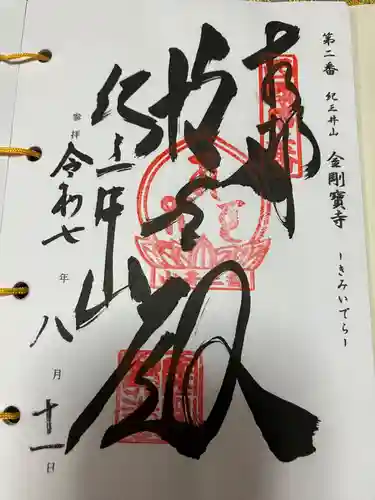 第二番 紀三井山 金剛寶寺 ーきみいでらー
奉拝
救世殿
紀三井山
参拝 令和七年八月十一日